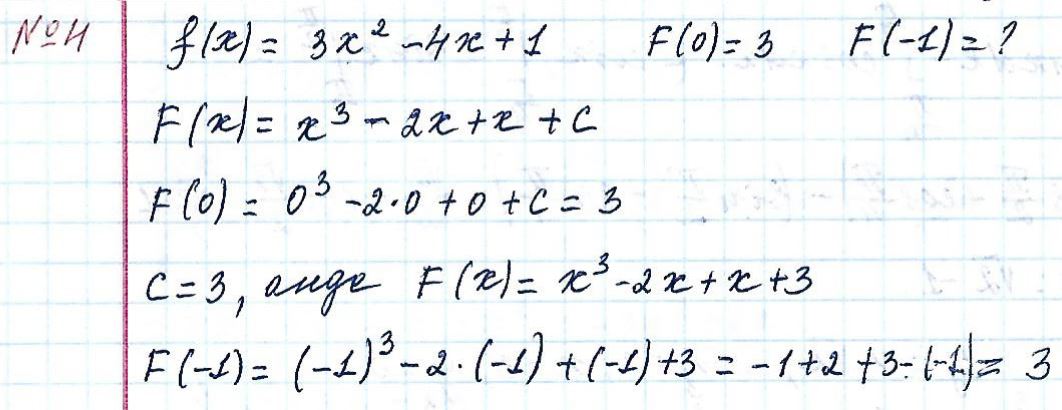 №4 f(x) = 3x² - 4x + 1 F(0) = 3 F(-1) = ?
F(x) = x³ - 2x + x + C
F(0) = 0³ - 2·0 + 0 + C = 3
C = 3, анде F(x) = x³ - 2x + x + 3
F(-1) = (-1)³ - 2·(-1) + (-1) + 3 = -1 + 2 + 3 - (-1) = 3